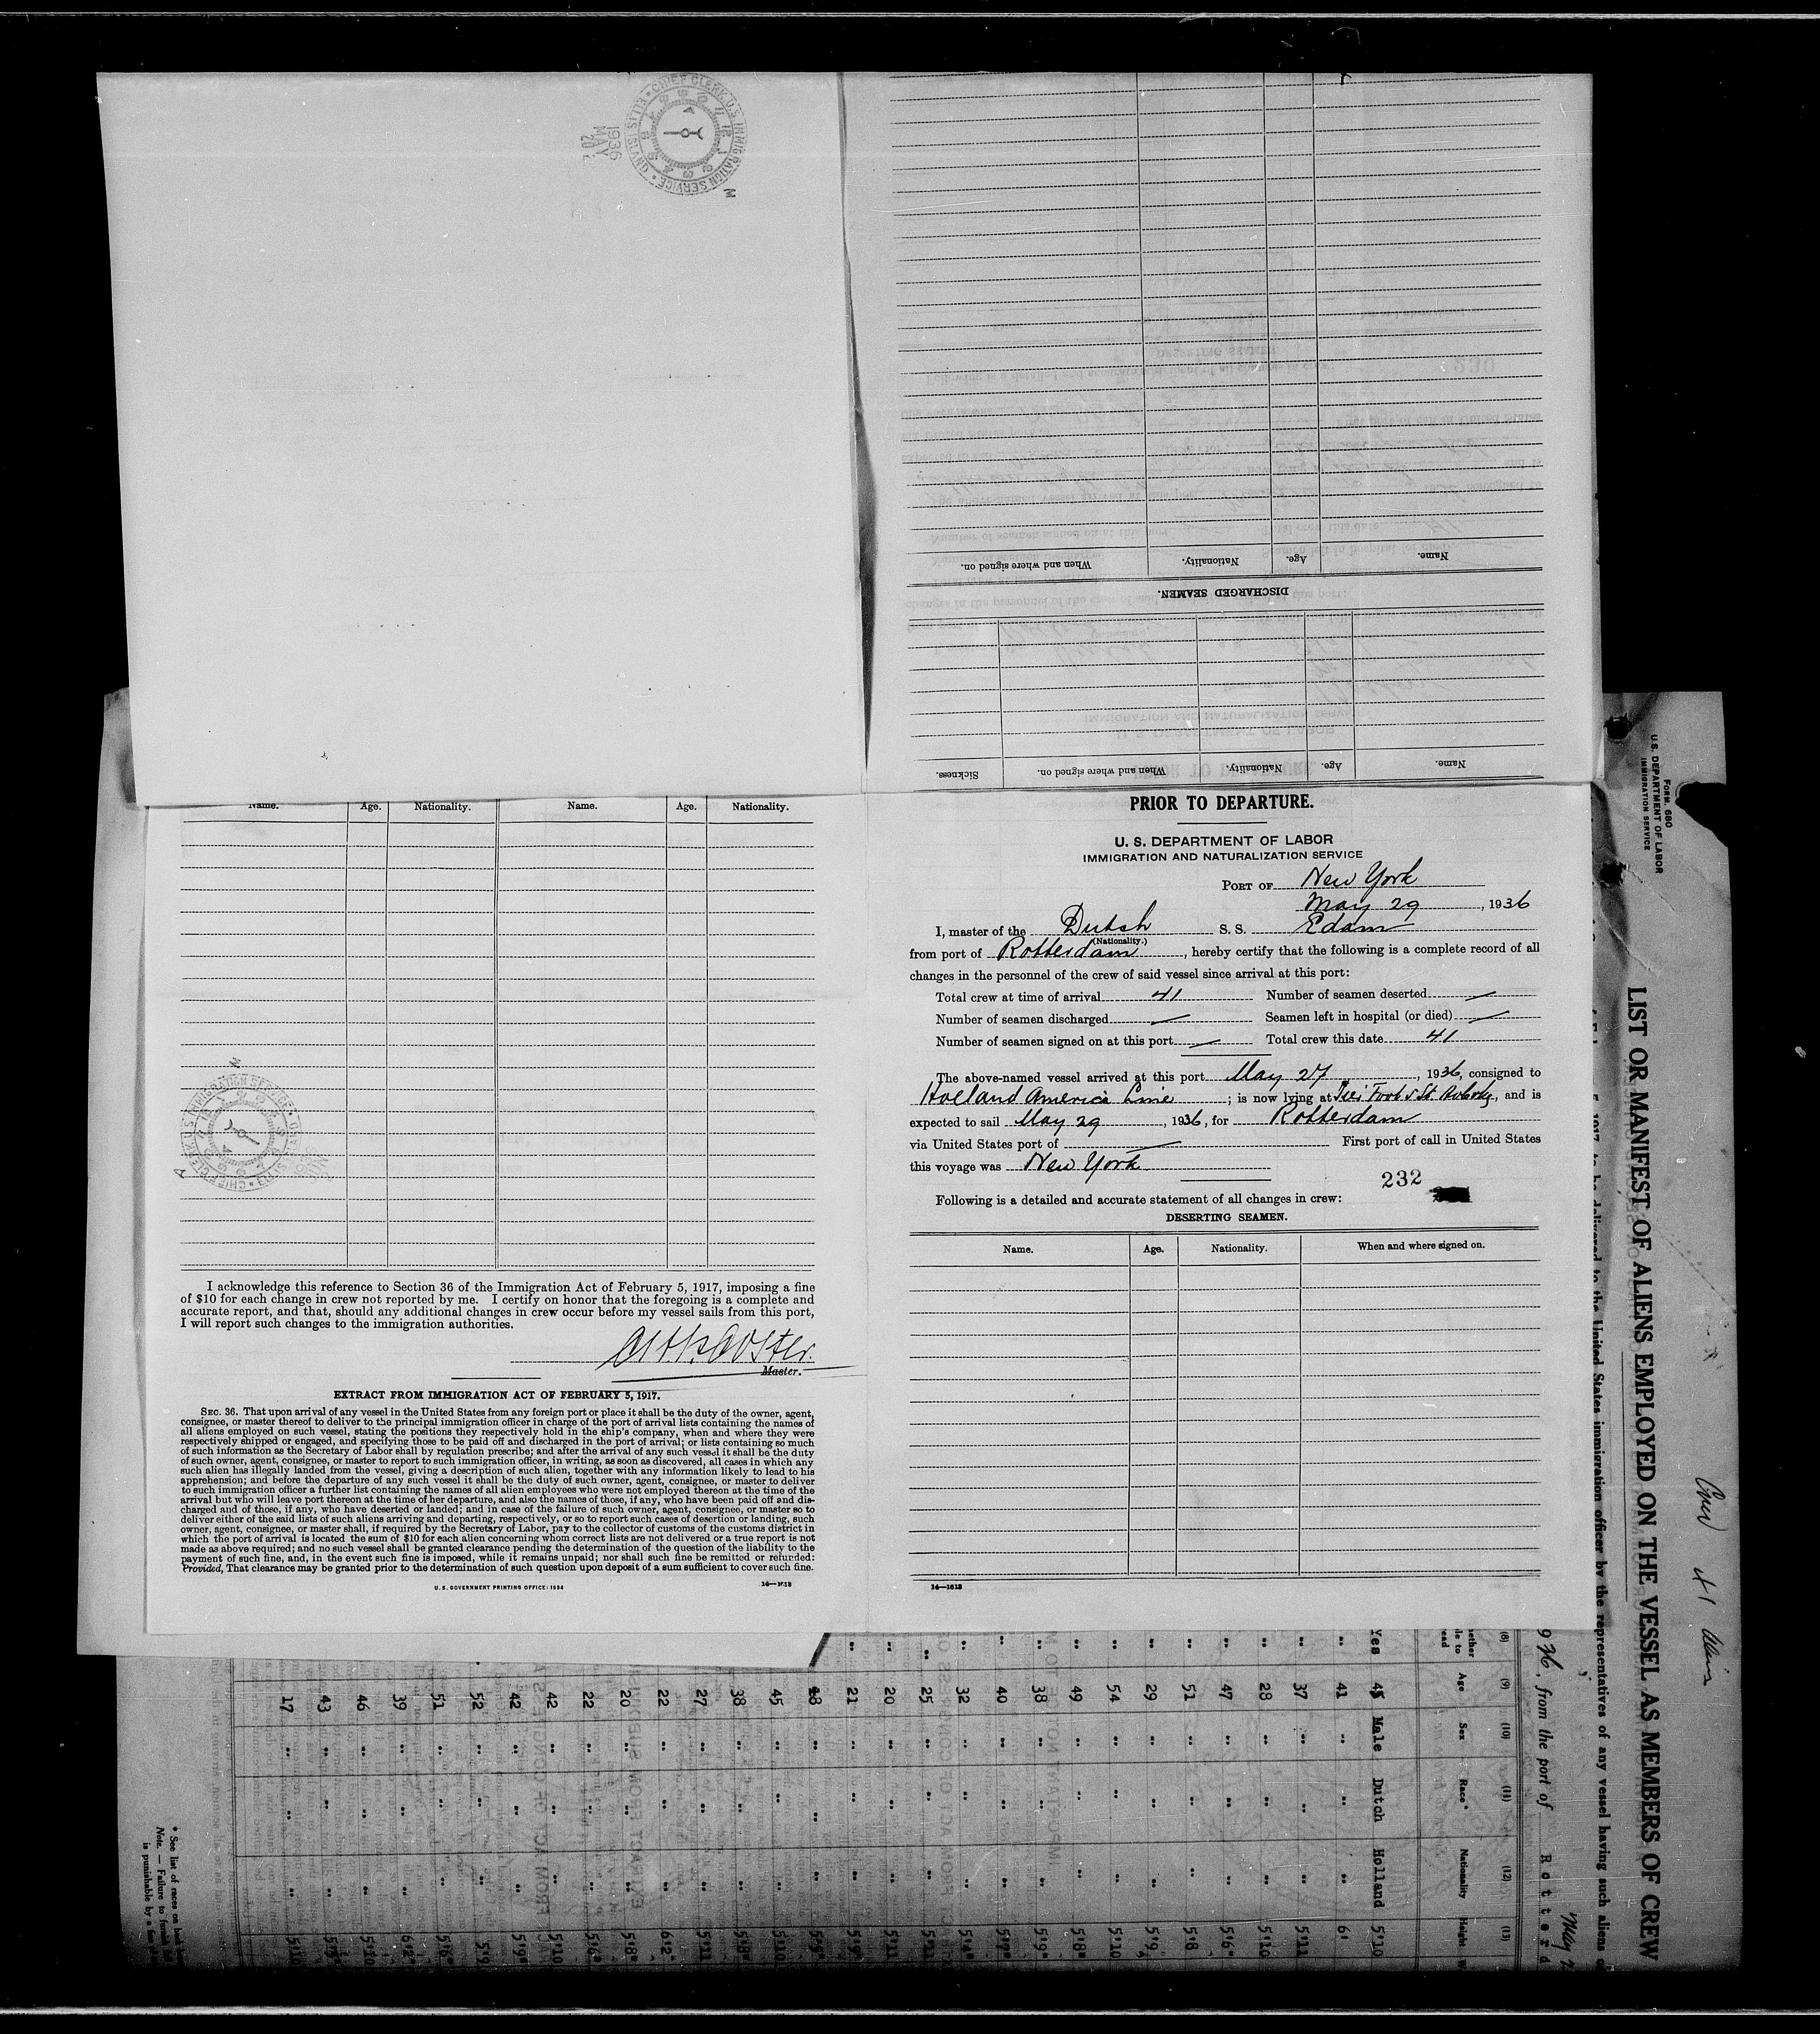 CHIEF CLERK U.S. IMMIGRATION SERVICE • ELLIS ISLAND •
1936
MAY
M
Name.
Age.
Nationality.
When and where signed on.
DISCHARGED SEAMEN.
Name.
Age.
Nationality.
When and where signed on.
Sickness.
Name. Age. Nationality. Name. Age. Nationality.
I acknowledge this reference to Section 36 of the Immigration Act of February 5, 1917, imposing a fine
of $10 for each change in crew not reported by me. I certify on honor that the foregoing is a complete and
accurate report, and that, should any additional changes in crew occur before my vessel sails from this port,
I will report such changes to the immigration authorities.
Master.
EXTRACT FROM IMMIGRATION ACT OF FEBRUARY 5, 1917.
SEC. 36. That upon arrival of any vessel in the United States from any foreign port or place it shall be the duty of the owner, agent,
consignee, or master thereof to deliver to the principal immigration officer in charge of the port of arrival lists containing the names of
all aliens employed on such vessel, stating the positions they respectively hold in the ship's company, when and where they were
respectively shipped or engaged, and specifying those to be paid off and discharged in the port of arrival; or lists containing so much
of such information as the Secretary of Labor shall by regulation prescribe; and after the arrival of any such vessel it shall be the duty
of such owner, agent, consignee, or master to report to such immigration officer, in writing, as soon as discovered, all cases in which any
such alien has illegally landed from the vessel, giving a description of such alien, together with any information likely to lead to his
apprehension; and before the departure of any such vessel it shall be the duty of such owner, agent, consignee, or master to deliver
to such immigration officer a further list containing the names of all alien employees who were not employed thereon at the time of the
arrival but who will leave port thereon at the time of her departure, and also the names of those, if any, who have been paid off and dis-
charged and of those, if any, who have deserted or landed; and in case of the failure of such owner, agent, consignee, or master so to
deliver either of the said lists of such aliens arriving and departing, respectively, or so to report such cases of desertion or landing, such
owner, agent, consignee, or master shall, if required by the Secretary of Labor, pay to the collector of customs of the customs district in
which the port of arrival is located the sum of $10 for each alien concerning whom correct lists are not delivered or a true report is not
made as above required; and no such vessel shall be granted clearance pending the determination of the question of the liability to the
payment of such fine, and, in the event such fine is imposed, while it remains unpaid; nor shall such fine be remitted or refunded:
Provided, That clearance may be granted prior to the determination of such question upon deposit of a sum sufficient to cover such fine.
U. S. GOVERNMENT PRINTING OFFICE: 1934
PRIOR TO DEPARTURE.
U. S. DEPARTMENT OF LABOR
IMMIGRATION AND NATURALIZATION SERVICE
PORT OF New York
May 29, 1936
I, master of the Dutch S. S. Edam
(Nationality.)
from port of Rotterdam, hereby certify that the following is a complete record of all
changes in the personnel of the crew of said vessel since arrival at this port:
Total crew at time of arrival 41 Number of seamen deserted —
Number of seamen discharged — Seamen left in hospital (or died) —
Number of seamen signed on at this port — Total crew this date 41
The above-named vessel arrived at this port May 27, 1936, consigned to
Holland America Line; is now lying at 5 St., and is
expected to sail May 29, 1936, for Rotterdam
via United States port of — First port of call in United States
this voyage was New York
232
Following is a detailed and accurate statement of all changes in crew:
DESERTING SEAMEN.
Name. Age. Nationality. When and where signed on.
14—1613
FORM 680
U. S. DEPARTMENT OF LABOR
IMMIGRATION SERVICE
LIST OR MANIFEST OF ALIENS EMPLOYED ON THE VESSEL AS MEMBERS OF CREW
Crew 41
to be delivered to the United States immigration officer by the representatives of any vessel having such aliens
936, from the port of Rotterd
(8) (9) (10) (11) (12) (13)
Age Sex Race* Nationality Height
Yes 45 Male Dutch Holland 5'10
41 " " " 6'
37 " " " 5'11
28 " " " 5'10
47 " " " 5'6"
51 " " " 5'8
29 " " " 5'9
54 " " " 5'10
49 " " " 5'8"
38 " " " 5'9"
40 " " " 5'7"
32 " " " 5'4"
25 " " " 5'11
20 " " " 5'11
21 " " " 5'9"
18 " " " 5'5"
45 " " " 5'10
38 " " " 5'8"
27 " " " 5'11
22 " " " 6'2"
20 " " " 5'8"
22 " " " 5'6"
42 " " " 5'10
42 " " " 5'9"
52 " " " 5'9
51 " " " 5'6"
39 " " " 6'2"
46 " " " 5'10
43 " " " 5'5"
17 " " " 5'10
* See list of races on back
Note. — Failure to furnish
is punishable by a fine